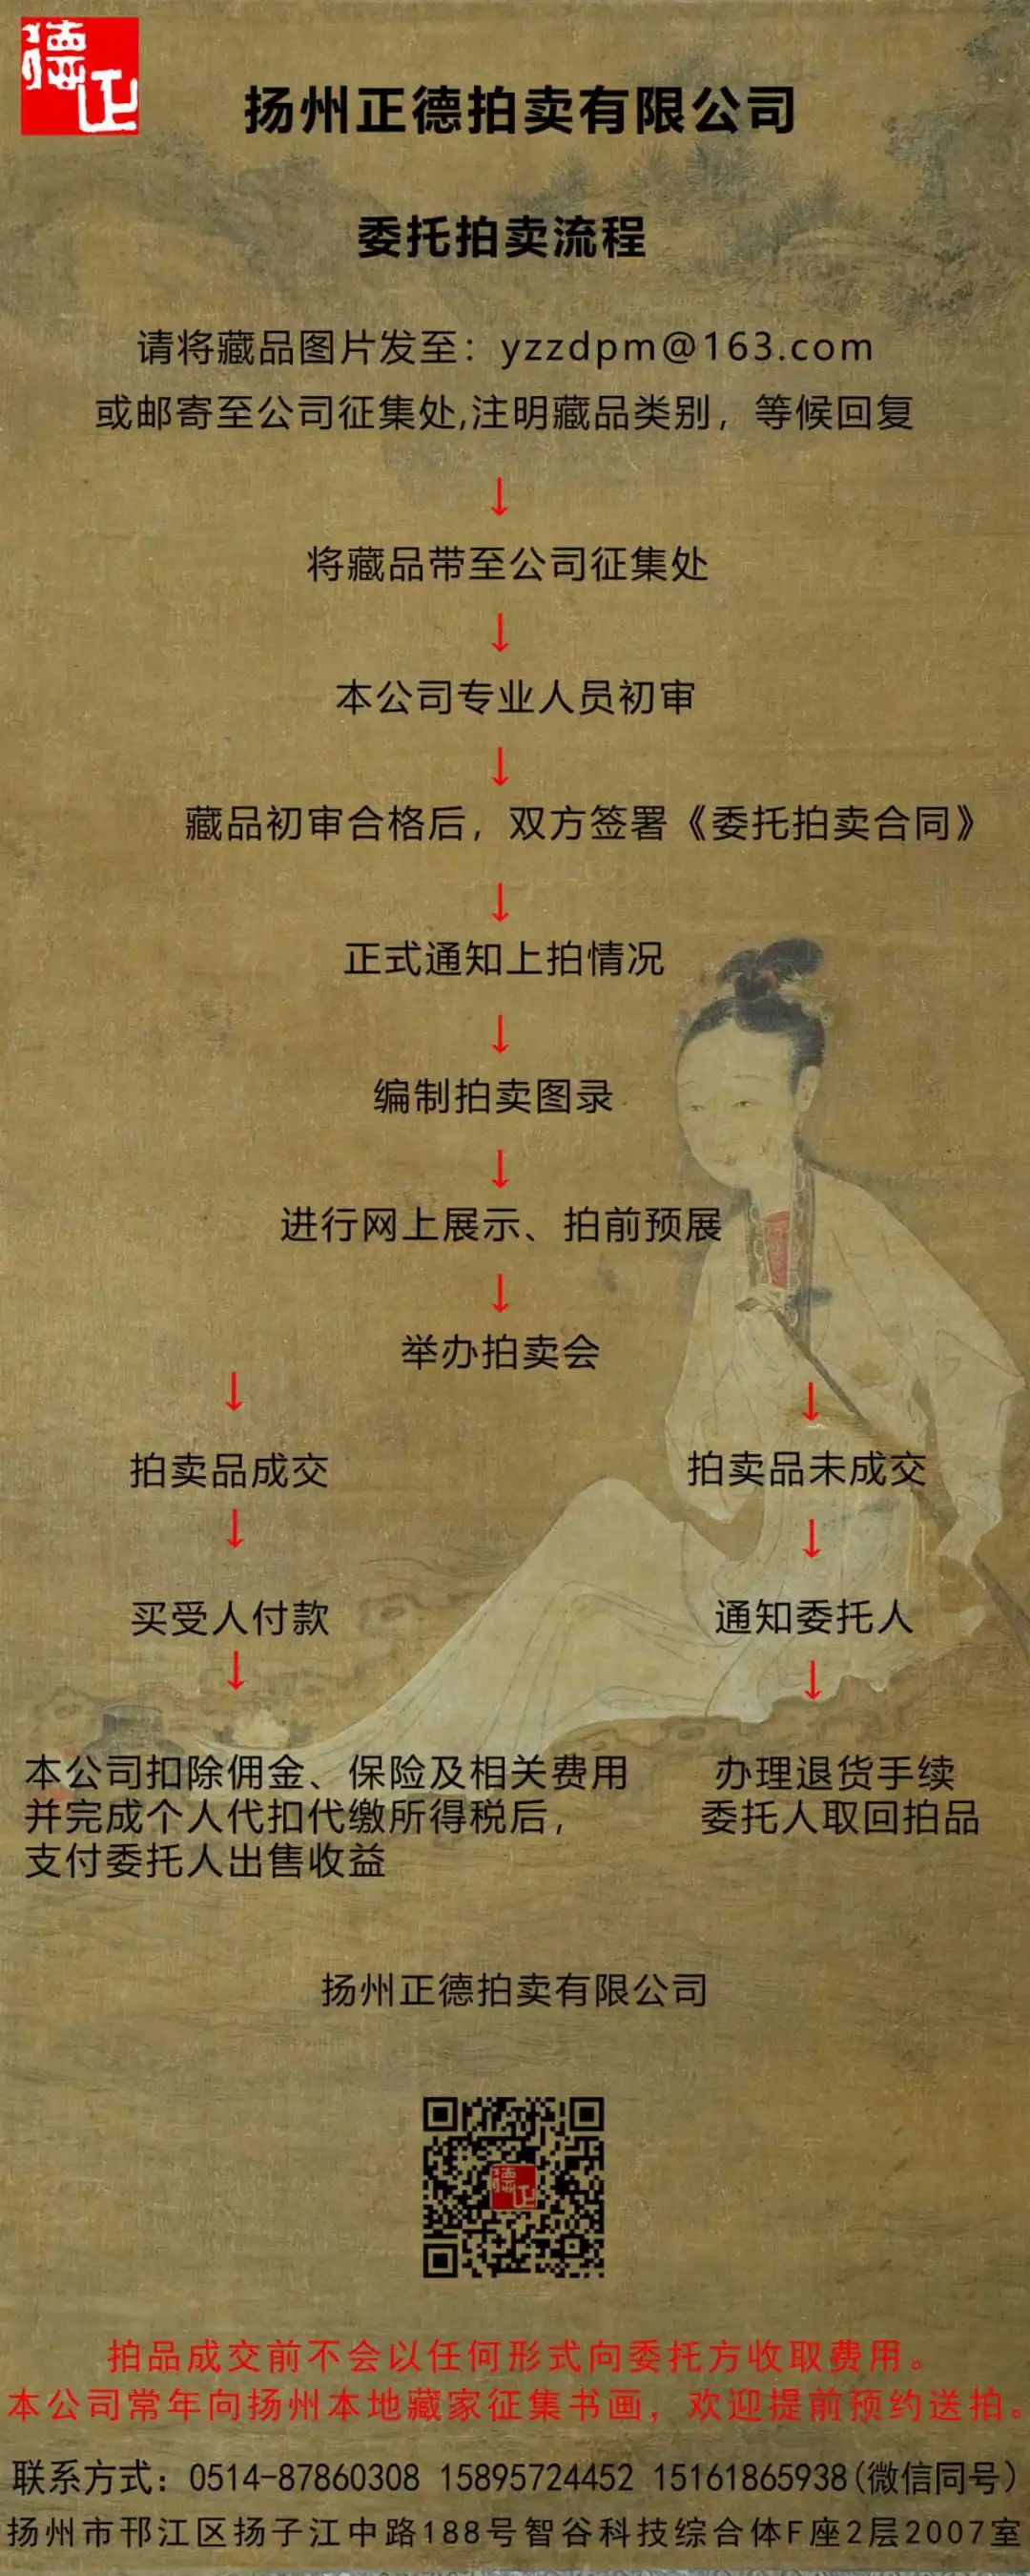 德正
扬州正德拍卖有限公司
委托拍卖流程
请将藏品图片发至：yzzdpm@163.com
或邮寄至公司征集处,注明藏品类别，等候回复
↓
将藏品带至公司征集处
↓
本公司专业人员初审
↓
藏品初审合格后，双方签署《委托拍卖合同》
↓
正式通知上拍情况
↓
编制拍卖图录
↓
进行网上展示、拍前预展
↓
举办拍卖会
↓ ↓
拍卖品成交 拍卖品未成交
↓ ↓
买受人付款 通知委托人
↓ ↓
本公司扣除佣金、保险及相关费用
并完成个人代扣代缴所得税后，
支付委托人出售收益
办理退货手续
委托人取回拍品
扬州正德拍卖有限公司
德正
拍品成交前不会以任何形式向委托方收取费用。
本公司常年向扬州本地藏家征集书画，欢迎提前预约送拍。
联系方式：0514-87860308 15895724452 15161865938(微信同号)
扬州市邗江区扬子江中路188号智谷科技综合体F座2层2007室